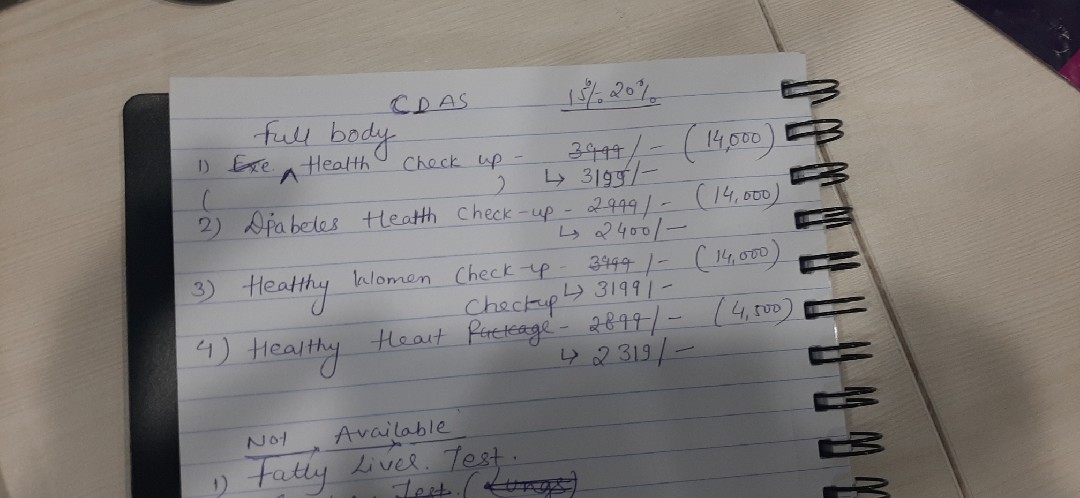 CDAS 15% 20%
Full body
1) Exe Health Check up - 3999/- (14,000)
( ) ↳ 3199/-
2) Diabetes Health Check-up - 2999/- (14,000)
↳ 2400/-
3) Healthy Women Check-up - 3999/- (14,000)
Checkup ↳ 3199/-
4) Healthy Heart Package - 2899/- (4,500)
↳ 2319/-
Not Available
1) Fatty Liver. Test.
Test (Lungs)